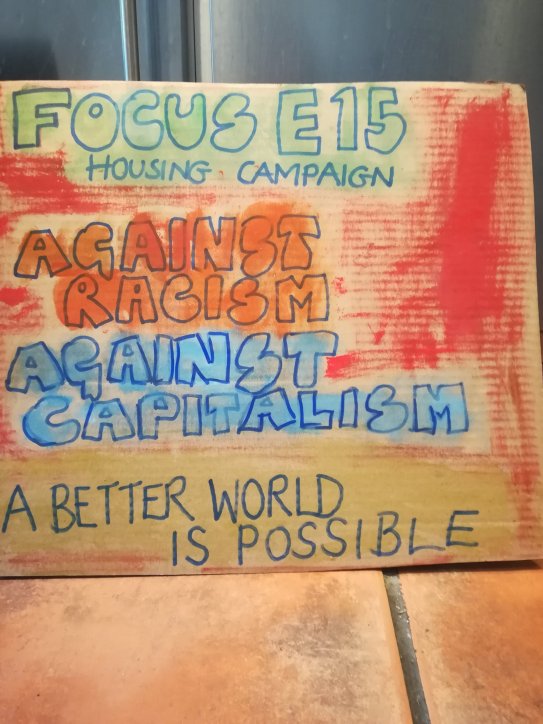 FOCUS E15
HOUSING CAMPAIGN
AGAINST
RACISM
AGAINST
CAPITALISM
A BETTER WORLD
IS POSSIBLE